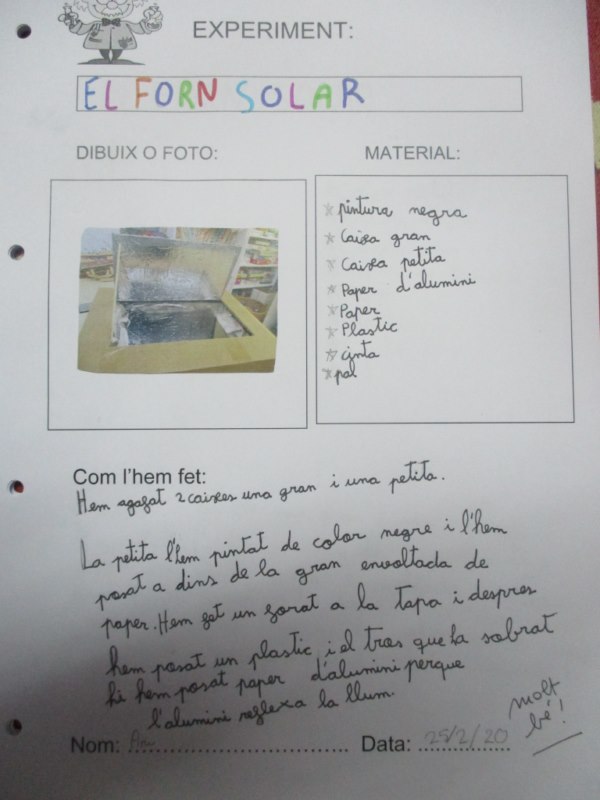 EXPERIMENT:
EL FORN SOLAR
DIBUIX O FOTO:
MATERIAL:
* pintura negra
* Caixa gran
* Caixa petita
* Paper d'alumini
* Paper
* Plastic
* cinta
* pal
Com l'hem fet:
Hem agafat 2 caixes una gran i una petita.
La petita l'hem pintat de color negre i l'hem
posat a dins de la gran envoltada de
paper. Hem fet un forat a la tapa i despres
hem posat un plastic i el tros que ha sobrat
hi hem posat paper d'alumini perque
l'alumini reflexa la llum.
molt
bé!
Nom: Data: 25/2/20